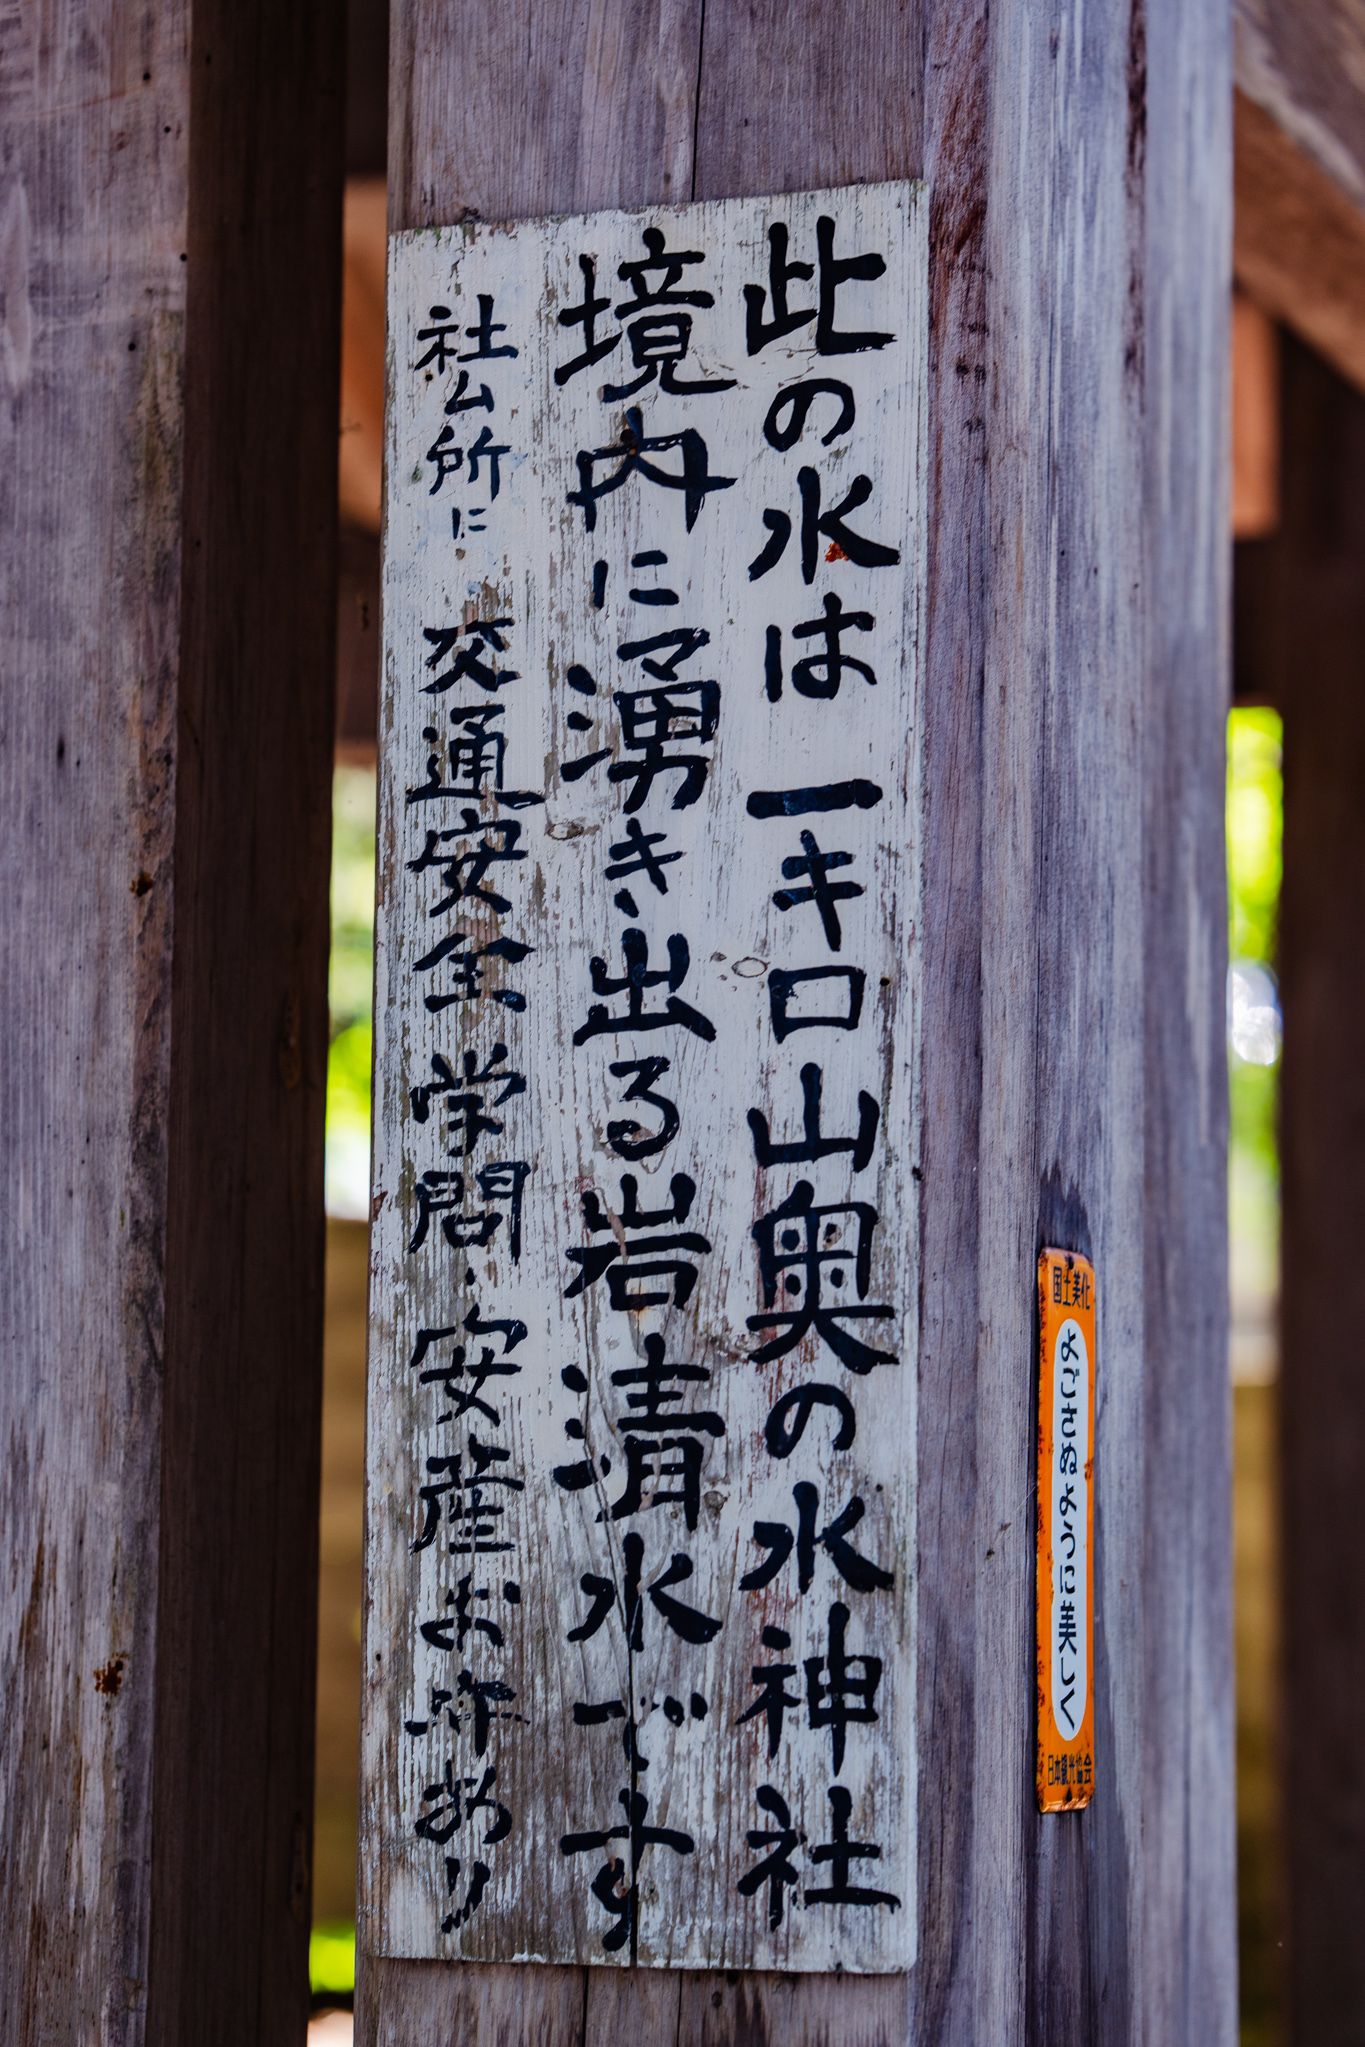 此の水は一キロ山奥の水神社
境内に湧き出る岩清水です
社ム所に 交通安全 学問・安産お守あり
国土美化
よごさぬように美しく
日本観光協会